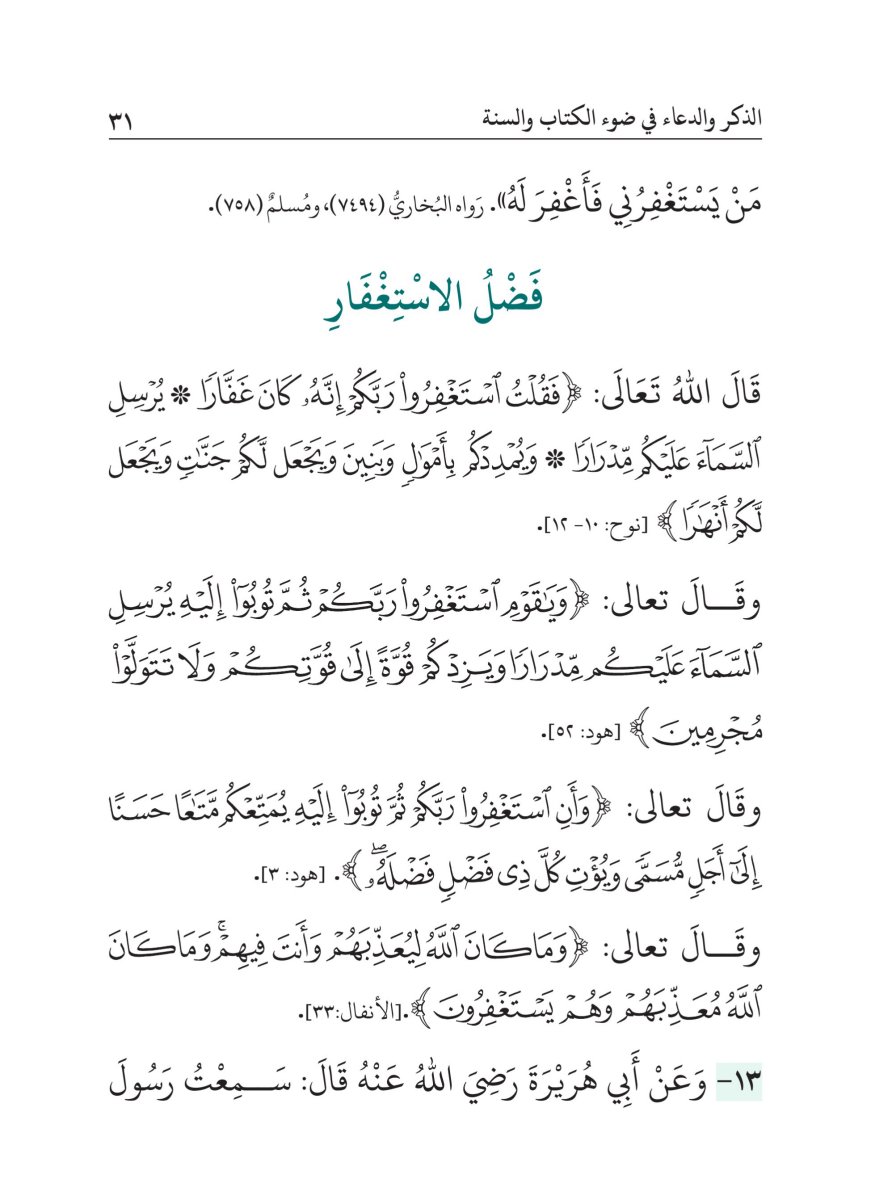 الذكر والدعاء في ضوء الكتاب والسنة ٣١
مَنْ يَسْتَغْفِرُنِي فَأَغْفِرَ لَهُ». رَواه البُخاريُّ (٧٤٩٤)، ومُسلمٌ (٧٥٨).
فَضْلُ الاسْتِغْفَارِ
قَالَ اللهُ تَعَالَى: ﴿فَقُلْتُ ٱسْتَغْفِرُوا۟ رَبَّكُمْ إِنَّهُۥ كَانَ غَفَّارًا * يُرْسِلِ
ٱلسَّمَآءَ عَلَيْكُم مِّدْرَارًا * وَيُمْدِدْكُم بِأَمْوَٰلٍ وَبَنِينَ وَيَجْعَل لَّكُمْ جَنَّٰتٍ وَيَجْعَل
لَّكُمْ أَنْهَٰرًا﴾ [نوح: ١٠- ١٢].
وقَـــالَ تعالى: ﴿وَيَٰقَوْمِ ٱسْتَغْفِرُوا۟ رَبَّكُمْ ثُمَّ تُوبُوٓا۟ إِلَيْهِ يُرْسِلِ
ٱلسَّمَآءَ عَلَيْكُم مِّدْرَارًا وَيَزِدْكُمْ قُوَّةً إِلَىٰ قُوَّتِكُمْ وَلَا تَتَوَلَّوْا۟
مُجْرِمِينَ﴾ [هود: ٥٢].
وقَالَ تعالى: ﴿وَأَنِ ٱسْتَغْفِرُوا۟ رَبَّكُمْ ثُمَّ تُوبُوٓا۟ إِلَيْهِ يُمَتِّعْكُم مَّتَٰعًا حَسَنًا
إِلَىٰٓ أَجَلٍ مُّسَمًّى وَيُؤْتِ كُلَّ ذِى فَضْلٍ فَضْلَهُۥۖ﴾. [هود: ٣].
وقَـــالَ تعالى: ﴿وَمَا كَانَ ٱللَّهُ لِيُعَذِّبَهُمْ وَأَنتَ فِيهِمْۚ وَمَا كَانَ
ٱللَّهُ مُعَذِّبَهُمْ وَهُمْ يَسْتَغْفِرُونَ﴾.[الأنفال:٣٣].
١٣- وَعَنْ أَبِي هُرَيْرَةَ رَضِيَ اللهُ عَنْهُ قَالَ: سَـــمِعْتُ رَسُولَ